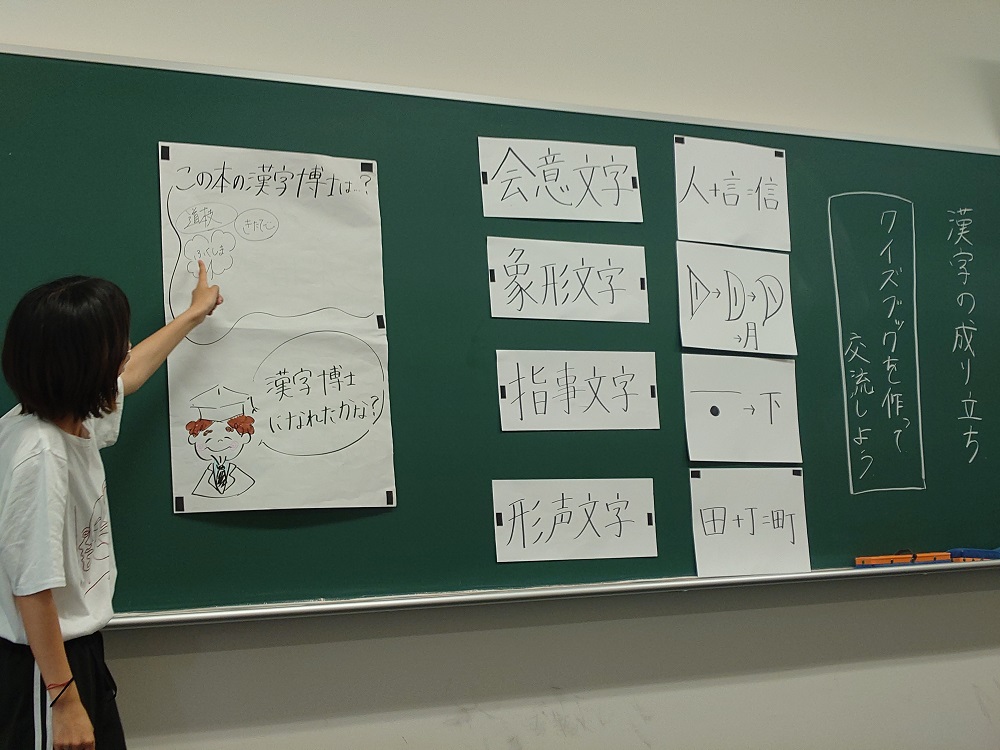 漢字の成り立ち
クイズブックを作って
交流しよう
会意文字
人+言=信
象形文字
→ → →月
指事文字
→下
形声文字
田+丁=町
この本の漢字博士は…?
ふくしま
漢字博士
になれたかな?